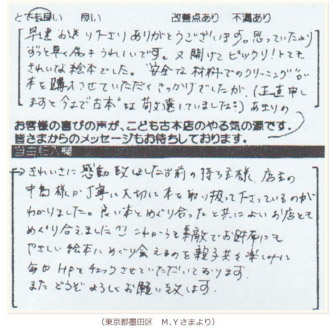 とても良い 良い 改善点あり 不満あり
早速お送り下さりありがとうございます。思っていたより
ずっと早く届きうれしいです。又開けてビックリ!とても
きれいな絵本でした。"安全な材料でのクリーニング"が
本を購入させていただくきっかけでしたが、(正直申し
ますと今まで"古本"は苦手としていました) あまりの
お客様の喜びの声が、こども古本店のやる気の源です。
皆さまからのメッセージもお待ちしております。
→きれいさに感動致しました 前の持ち主様、店主の
中島様が丁寧に大切に本を取り扱って下さっているのが
わかりました。良い本とめぐり合ったと共によいお店とも
めぐり合えました!! これからも素敵でお財布にも
やさしい絵本にめぐり会えるのを親子共々楽しみに
毎日HPをチェックさせていただいております。
またどうぞよろしくお願い致します。
(東京都墨田区 M,Yさまより)